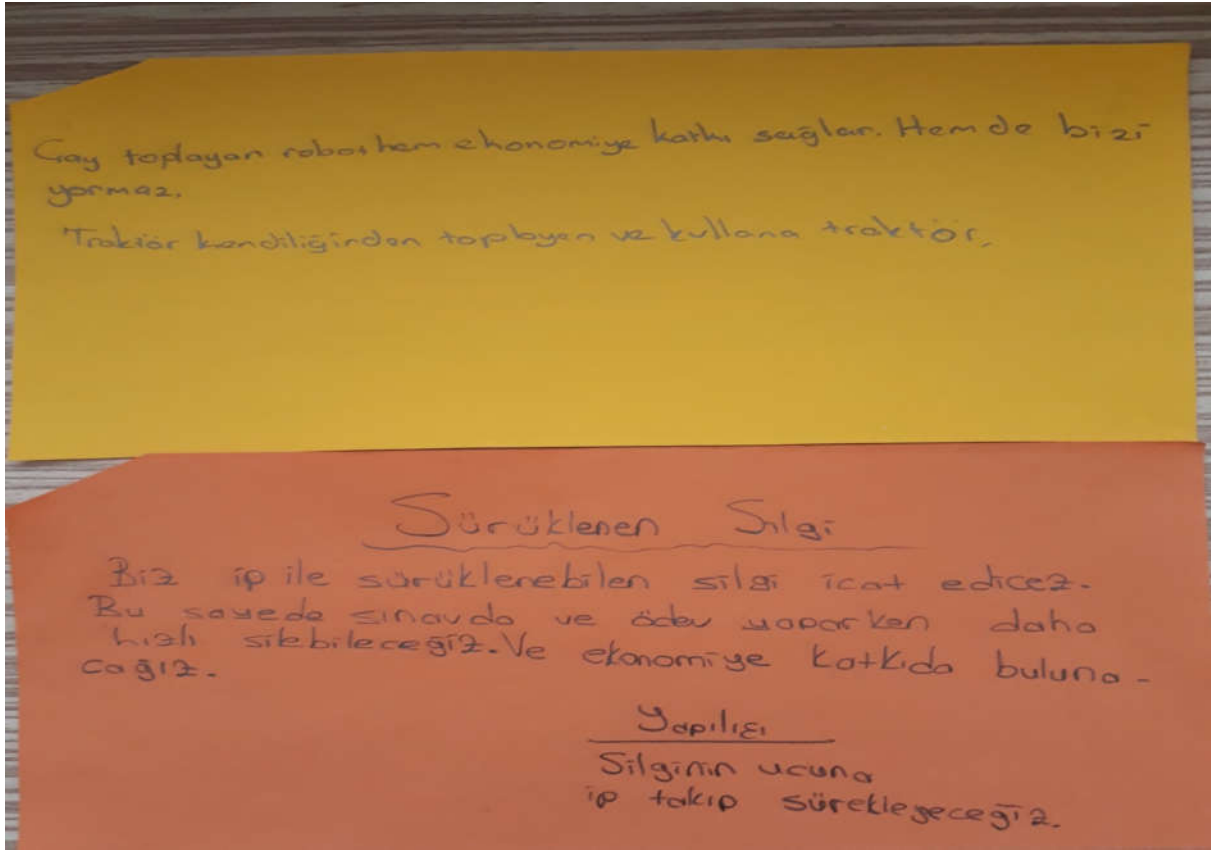 Çay toplayan robot hem ekonomiye katkı sağlar. Hem de bizi
yormaz.
Traktör kendiliğinden toplayan ve kullana traktör.
Sürüklenen Silgi
Biz ip ile sürüklenebilen silgi icat edicez.
Bu sayede sınavda ve ödev yaparken daha
hızlı silebileceğiz. Ve ekonomiye katkıda buluna-
cağız.
Yapılışı
Silginin ucuna
ip takıp sürekleyeceğiz.